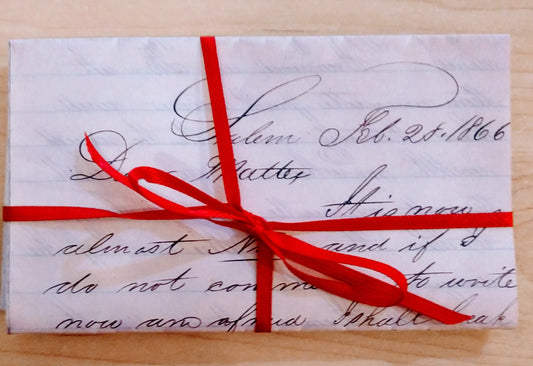 Salem Feb. 28. 1866
Mattex
It is now
almost and if I
do not to write
now am afraid I shall